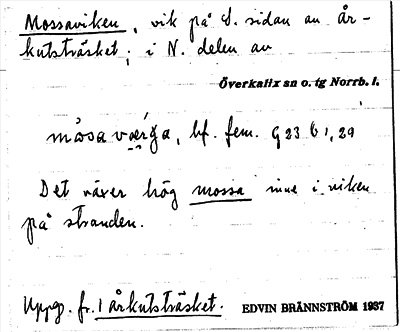 Mossaviken, vik på S. sidan av år-
kutsträsket; i N. delen av
Överkalix sn o. tg Norrb. l.
måsa værga, bf. fem. G 23 b 1, 29
Det växer hög mossa inne i viken
på stranden.
Uppg. fr. 1 årkutsträsket. EDVIN BRÄNNSTRÖM 1937